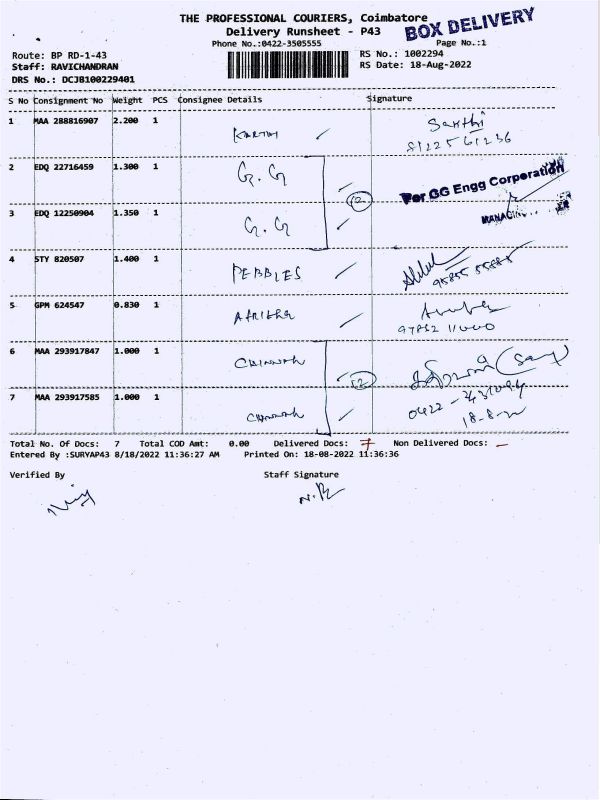 THE PROFESSIONAL COURIERS, Coimbatore
Delivery Runsheet - P43
BOX DELIVERY
Phone No.:0422-3505555
Page No.:1
Route: BP RD-1-43
RS No.: 1002294
Staff: RAVICHANDRAN
RS Date: 18-Aug-2022
DRS No.: DCJB100229401
S No Consignment No Weight PCS Consignee Details Signature
1 MAA 288816907 2.200 1 KARTHI Sakthi
8122561236
2 EDQ 22716459 1.300 1 G.G
Per GG Engg Corporation
12
3 EDQ 12250904 1.350 1 G.G
4 STY 820507 1.400 1 PEBBLES
5 GPM 624547 0.830 1
97862 11000
6 MAA 293917847 1.000 1
7 MAA 293917585 1.000 1
18-8-22
Total No. Of Docs: 7 Total COD Amt: 0.00 Delivered Docs: 7 Non Delivered Docs: –
Entered By :SURYAP43 8/18/2022 11:36:27 AM Printed On: 18-08-2022 11:36:36
Verified By Staff Signature